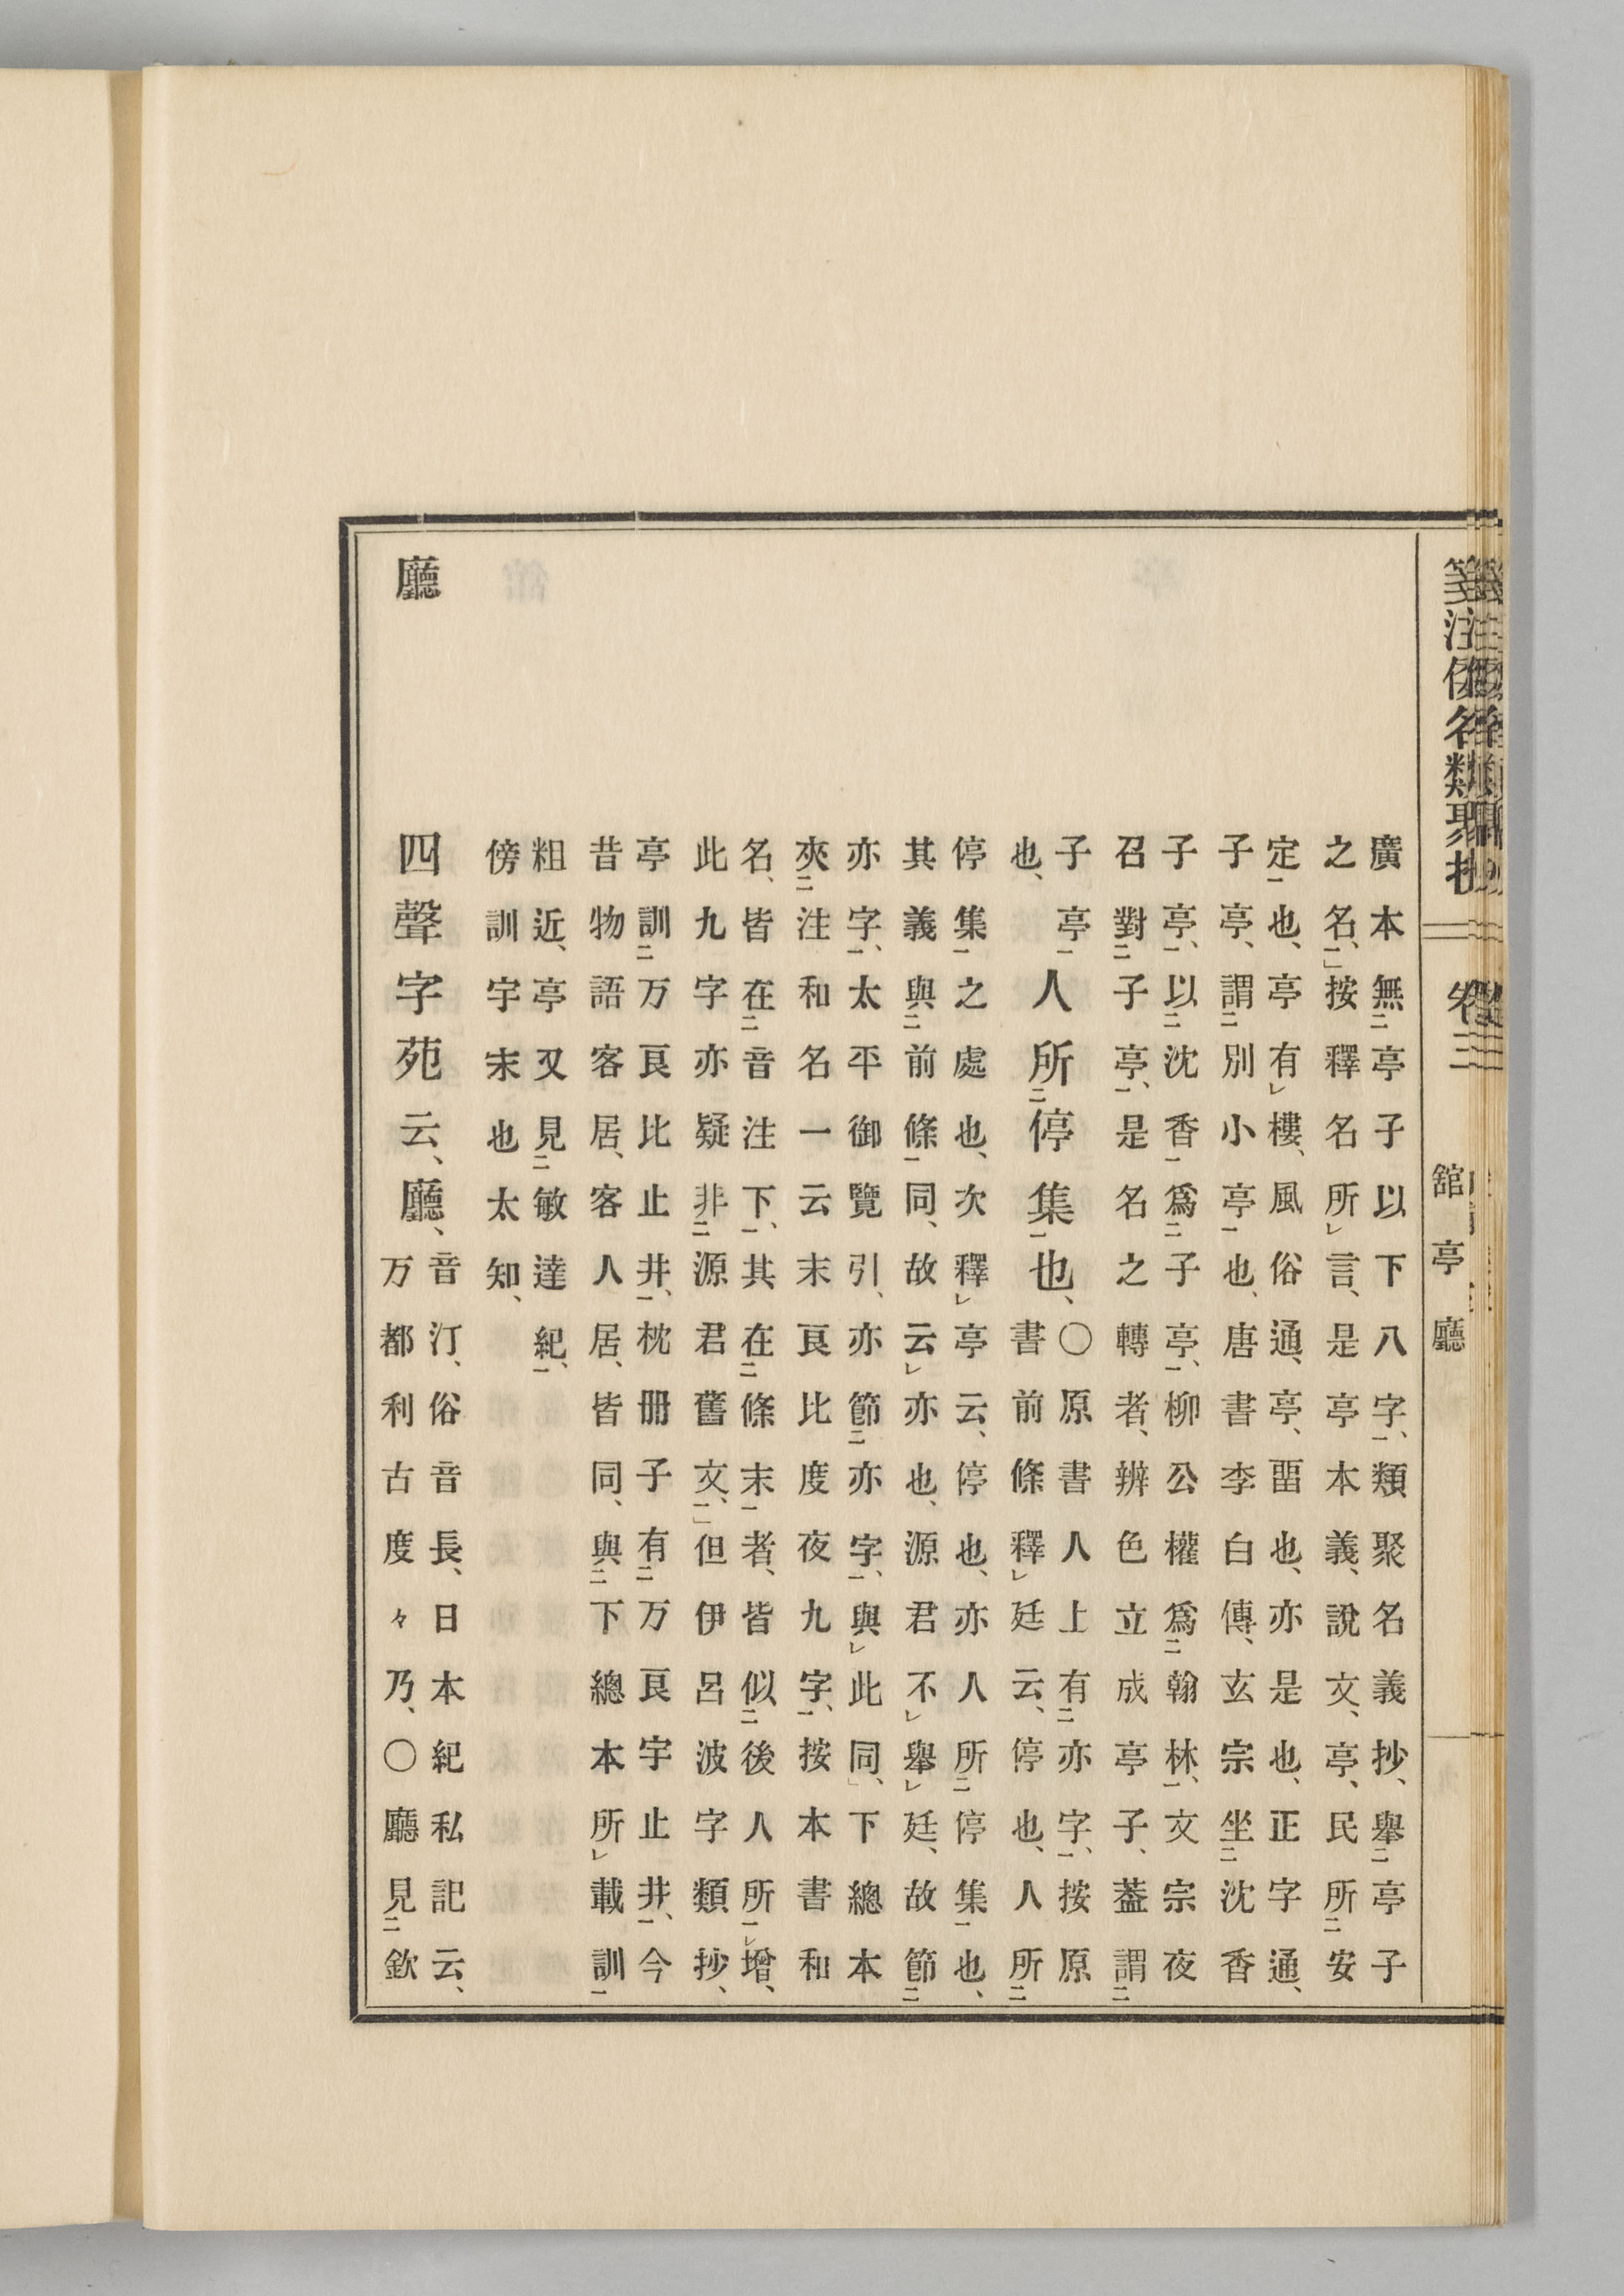 箋注倭名類聚抄 卷三 舘 亭 廳
廣本無亭子以下八字、類聚名義抄、舉亭子
之名、按釋名所言、是亭本義、說文、亭、民所安
定也、亭有樓、風俗通、亭、畱也、亦是也、正字通、
子亭、謂別小亭也、唐書李白傳、玄宗坐沈香
子亭、以沈香爲子亭、柳公權爲翰林、文宗夜
召對子亭、是名之轉者、辨色立成亭子、葢謂
子亭
也、
人所停集也、
○原書人上有亦字、按原
書前條釋廷云、停也、人所
停集之處也、次釋亭云、停也、亦人所停集也、
其義與前條同、故云亦也、源君不舉廷、故節
亦字、太平御覽引、亦節亦字、與此同、下總本
夾注和名一云末良比度夜九字、按本書和
名、皆在音注下、其在條末者、皆似後人所增、
此九字亦疑非源君舊文、但伊呂波字類抄、
亭訓万良比止井、枕册子有万良宇止井、今
昔物語客居、客人居、皆同、與下總本所載訓
粗近、亭又見敏達紀、
傍訓宇末也太知、
廳
四聲字苑云、廳、
音汀、俗音長、日本紀私記云、
万都利古度々乃、○廳見欽